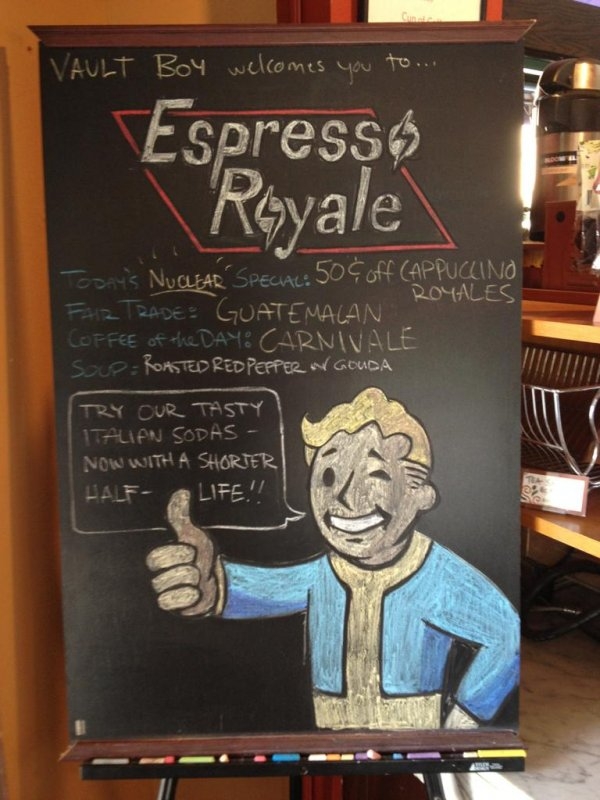 VAULT BOY welcomes you to...
Espresso
Royale
TODAY'S "NUCLEAR" SPECIAL: 50¢ off CAPPUCCINO
ROYALES
FAIR TRADE: GUATEMALAN
COFFEE of the DAY: CARNIVALE
SOUP: ROASTED RED PEPPER W/ GOUDA
TRY OUR TASTY
ITALIAN SODAS -
NOW WITH A SHORTER
HALF- LIFE!!